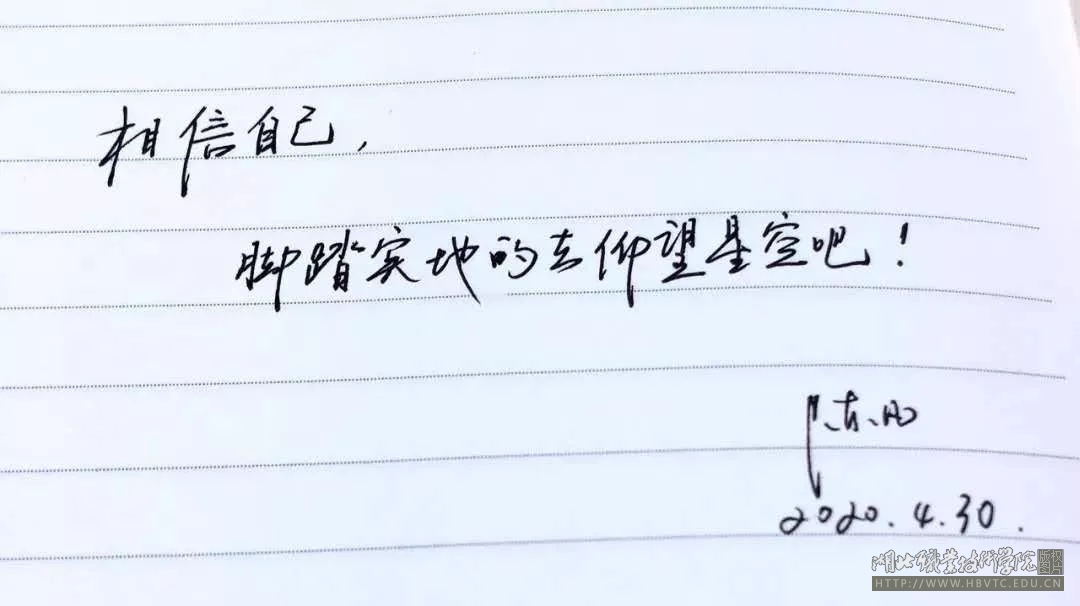 相信自己,
脚踏实地的去仰望星空吧!
2020.4.30.
湖北职业技术学院
版权
图片
HTTP://WWW.HBVTC.EDU.CN